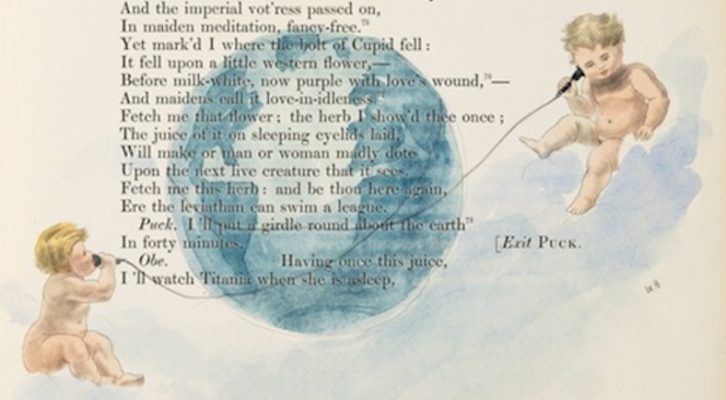 And the imperial vot'ress passed on,
In maiden meditation, fancy-free.⁷⁵
Yet mark'd I where the bolt of Cupid fell:
It fell upon a little western flower,—
Before milk-white, now purple with love's wound,⁷⁶—
And maidens call it, love-in-idleness.
Fetch me that flower; the herb I show'd thee once;
The juice of it on sleeping eyelids laid,
Will make or man or woman madly dote
Upon the next live creature that it sees.
Fetch me this herb: and be thou here again,
Ere the leviathan can swim a league.
Puck. I'll put a girdle round about the earth
In forty minutes. [Exit PUCK.
Obe. Having once this juice,
I'll watch Titania when she is asleep,